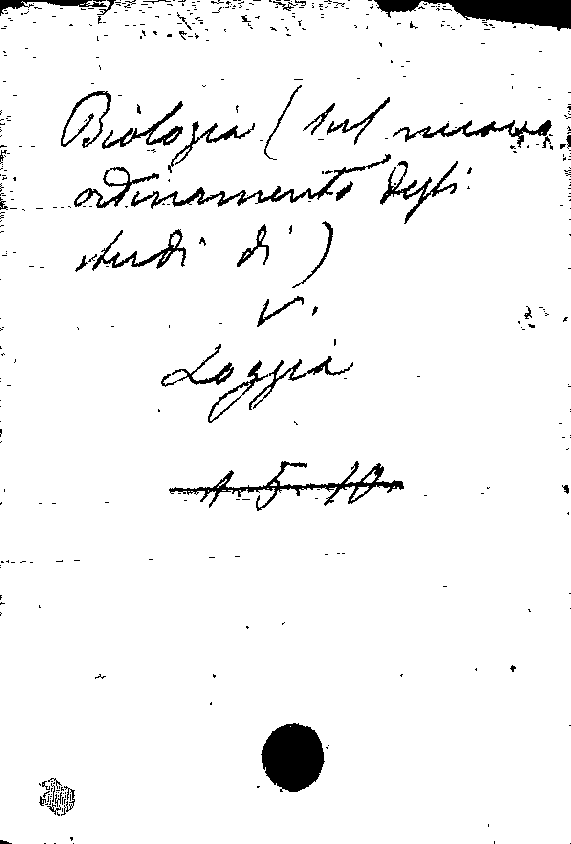 Biologia (sul nuovo
ordinamento degli
studi di)
V.
Loggia
A. 5. 10.